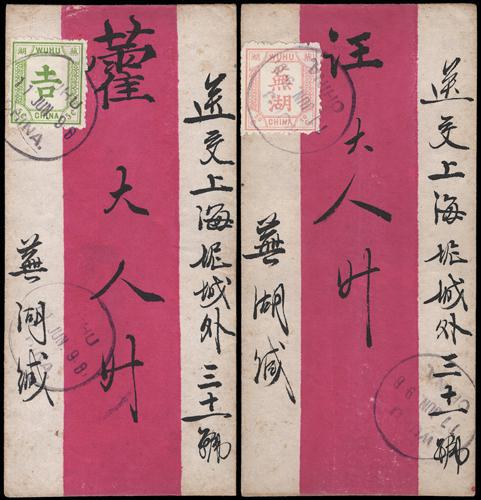 WUHU
吉
CHINA
送交上海坭城外三十一號
藿大人升
蕪湖緘
WUHU
蕪湖
CHINA
送交上海坭城外三十一號
汪大人升
蕪湖緘